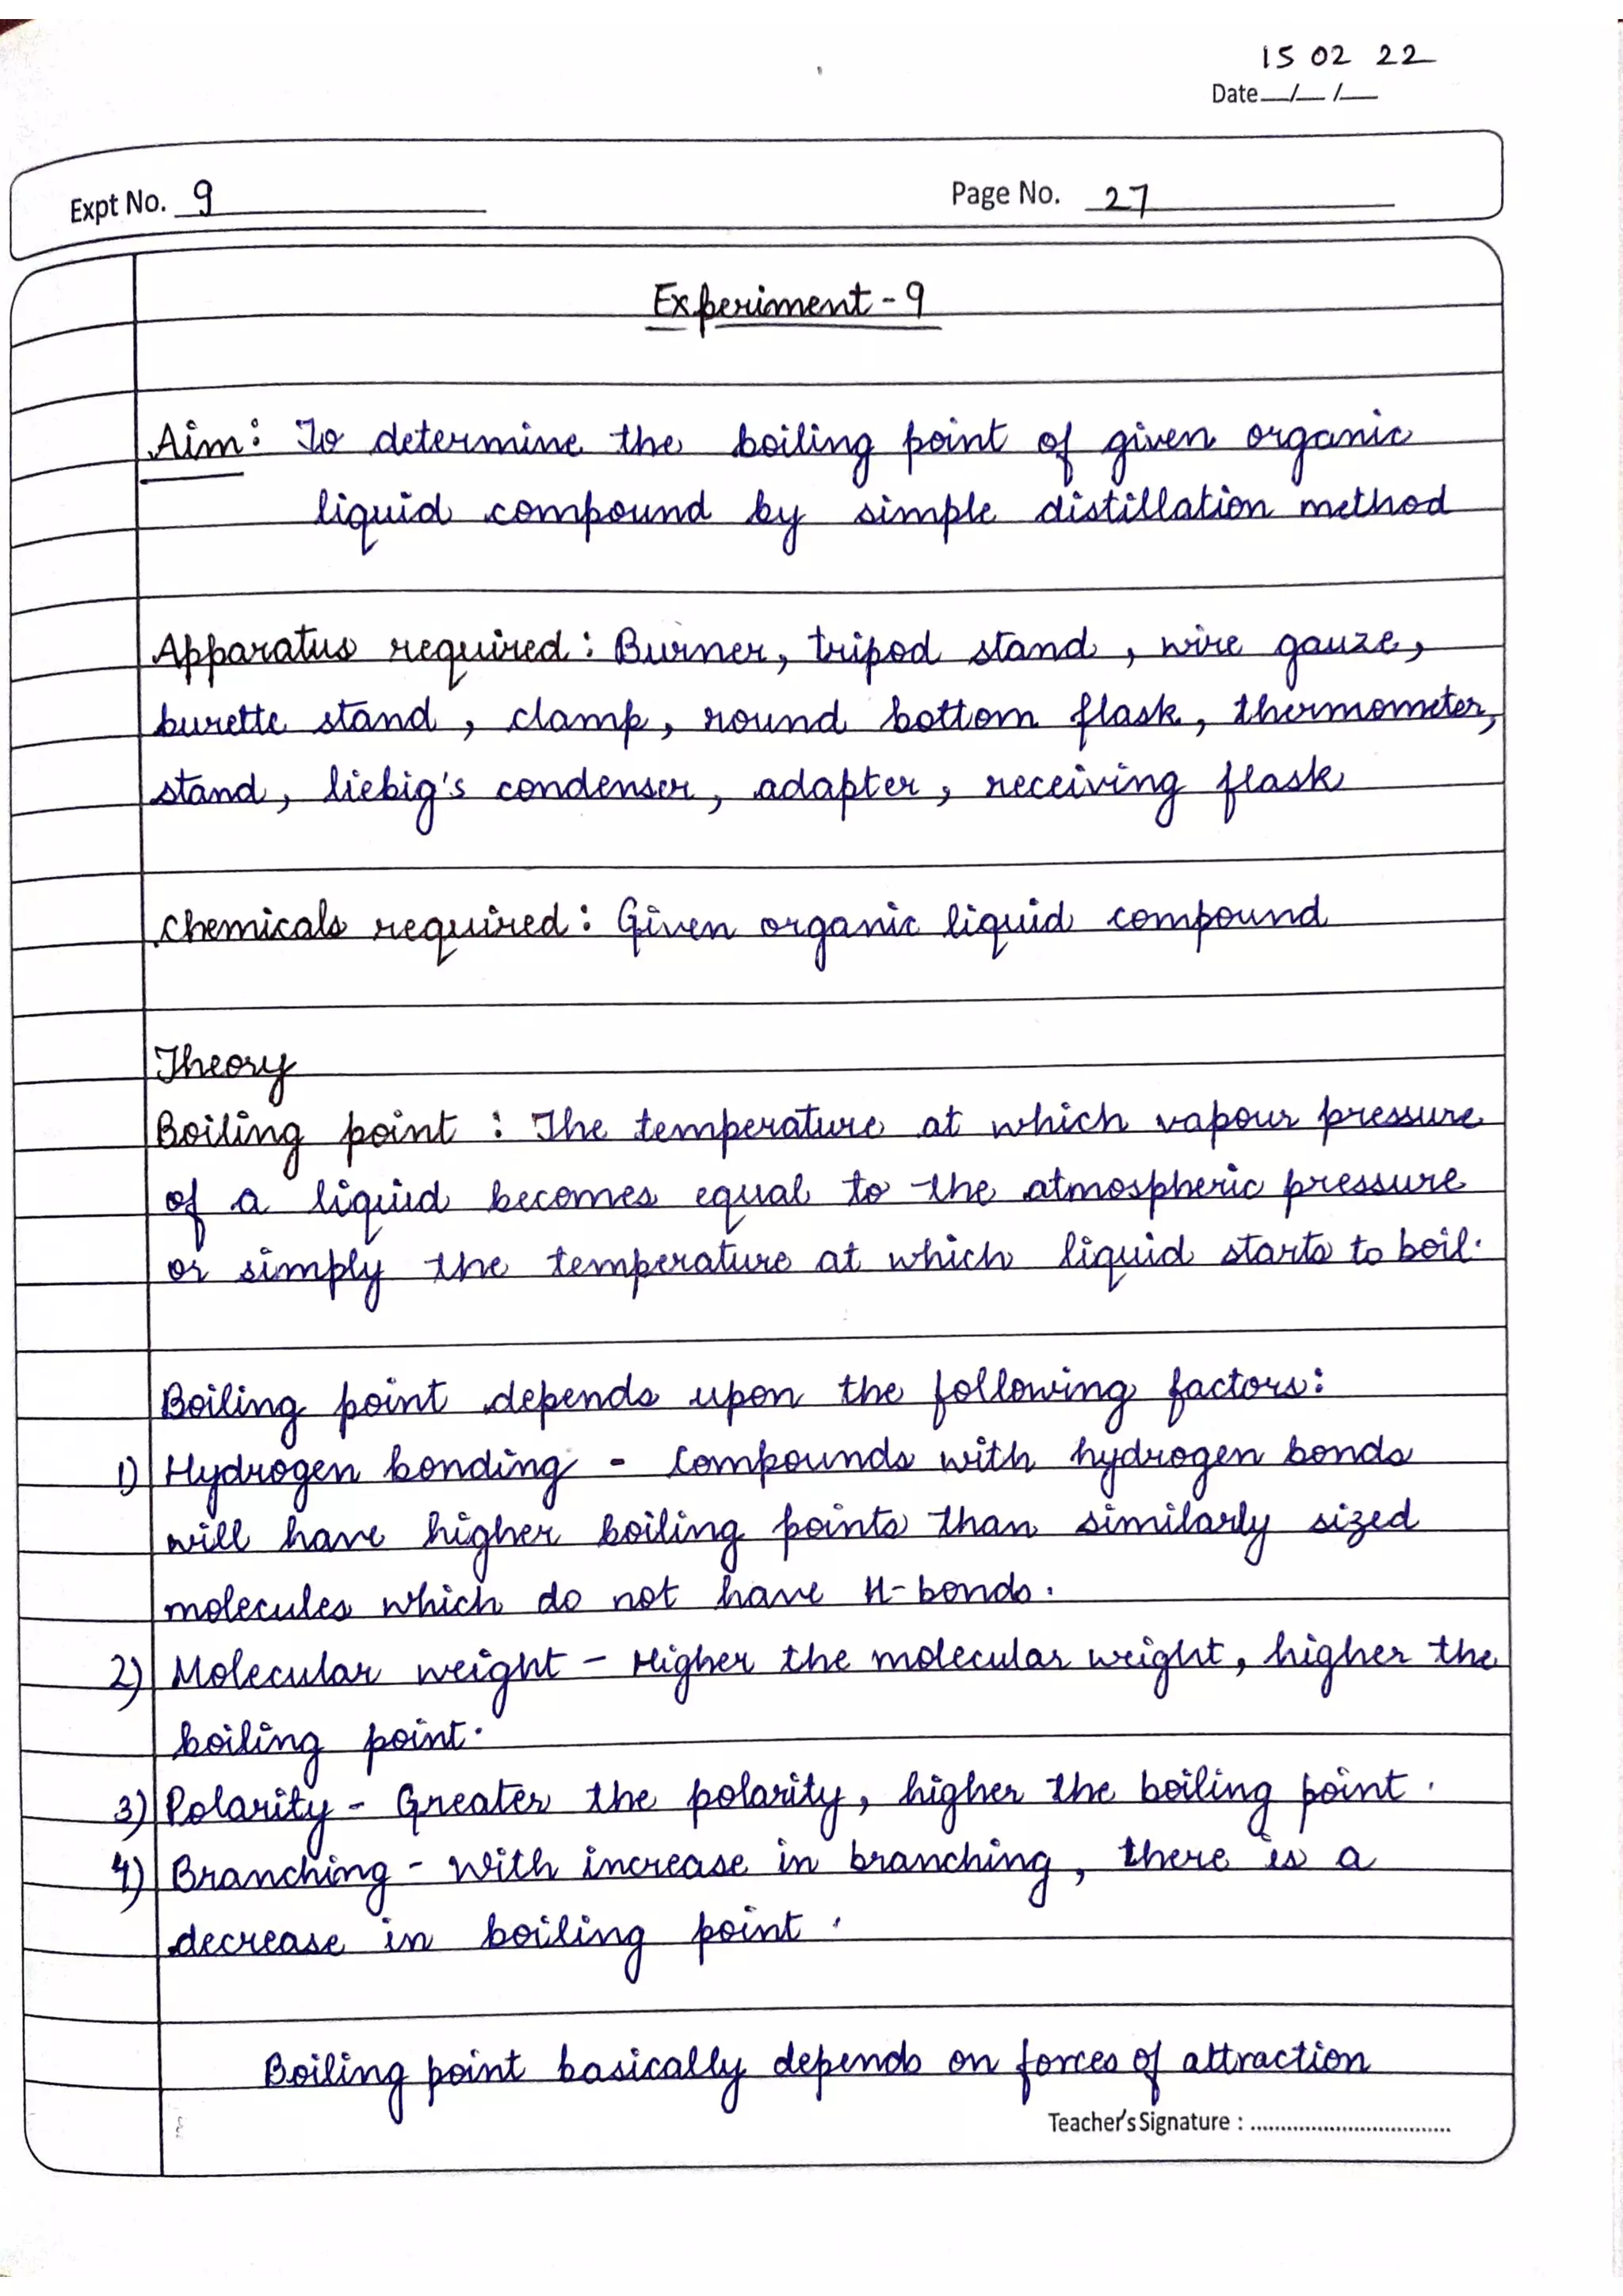 15 02 22
Date__/__/__
Expt No. 9
Page No. 27
Experiment - 9
Aim: To determine the boiling point of given organic
liquid compound by simple distillation method
Apparatus required: Burner, tripod stand, wire gauze,
burette stand, clamp, round bottom flask, thermometer,
stand, liebig's condenser, adapter, receiving flask
Chemicals required: Given organic liquid compound
Theory
Boiling point : The temperature at which vapour pressure
of a liquid becomes equal to the atmospheric pressure
or simply the temperature at which liquid starts to boil.
Boiling point depends upon the following factors:
1) Hydrogen bonding - Compounds with hydrogen bonds
will have higher boiling points than similarly sized
molecules which do not have H-bonds.
2) Molecular weight - Higher the molecular weight, higher the
boiling point.
3) Polarity - Greater the polarity, higher the boiling point.
4) Branching - With increase in branching, there is a
decrease in boiling point.
Boiling point basically depends on forces of attraction
Teacher's Signature : ................................